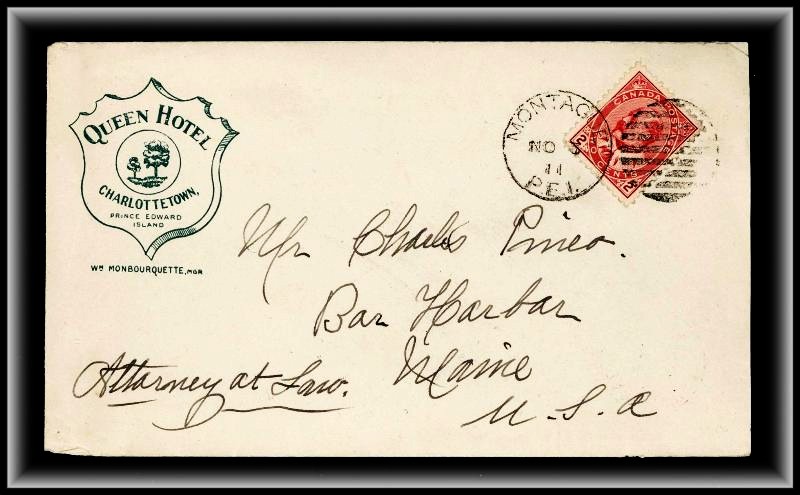 QUEEN HOTEL
CHARLOTTETOWN,
PRINCE EDWARD
ISLAND
WM MONBOURQUETTE, MGR
MONTAG
NO
11
P.E.I.
CANADA POSTAGE
2 CENTS 2
Mr Charles Pineo.
Bar Harbor
Maine
U.S.a
Attorney at Law.